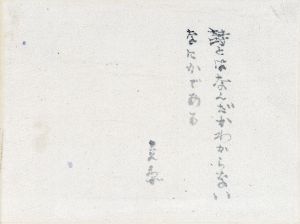 とはなんだかわからない
なにかである